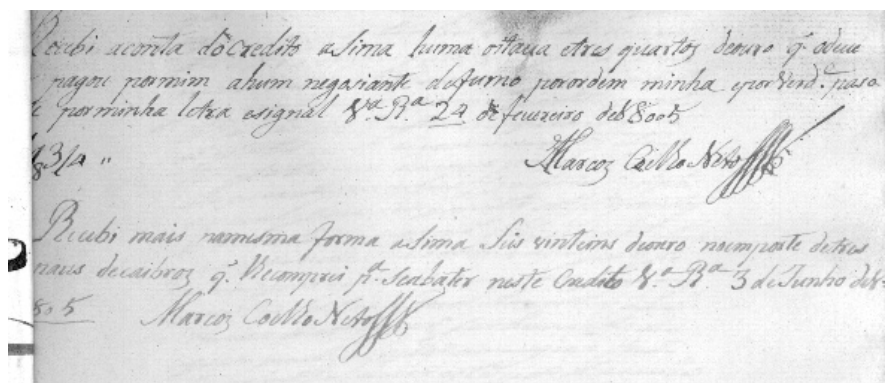 Recebi aconta dô Credito asima huma oitaua etres quartos deouro q. odeue
pagou pormim ahum negosiante defumo porordem minha eporVerd.e paso
e porminha letra esignal V.a R.a 24 de feuereiro de 18005
3/4 "
Marcos Coelho Neto
Recebi mais namesma forma asima Seis vinteins deouro noimporte detres
decaibros q. lhecomprei p.a Seabater neste Credito V.a R.a 3 de Junho de
805
Marcos Coelho Neto